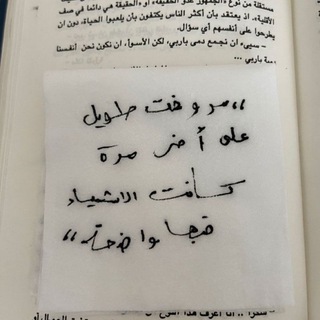 مستقلة من نوع «الجمهور عدو الحقيقة» أو «الحقيقة هي دائما في صف
الأقلية». اذ يعتقد بأن أكثر الناس يكتفون بأن يلعبوا الحياة، دون ان
يطرحوا على أنفسهم أي سؤال.
- سيىء ان نجمع دمى باربي، لكن الأسوأ، ان نكون نحن أنفسنا
دمية باربي ...
”مر وقت طويل
على أخر مرة
كانت الاشياء
فيها واضحة“
أنا أعرف هذا